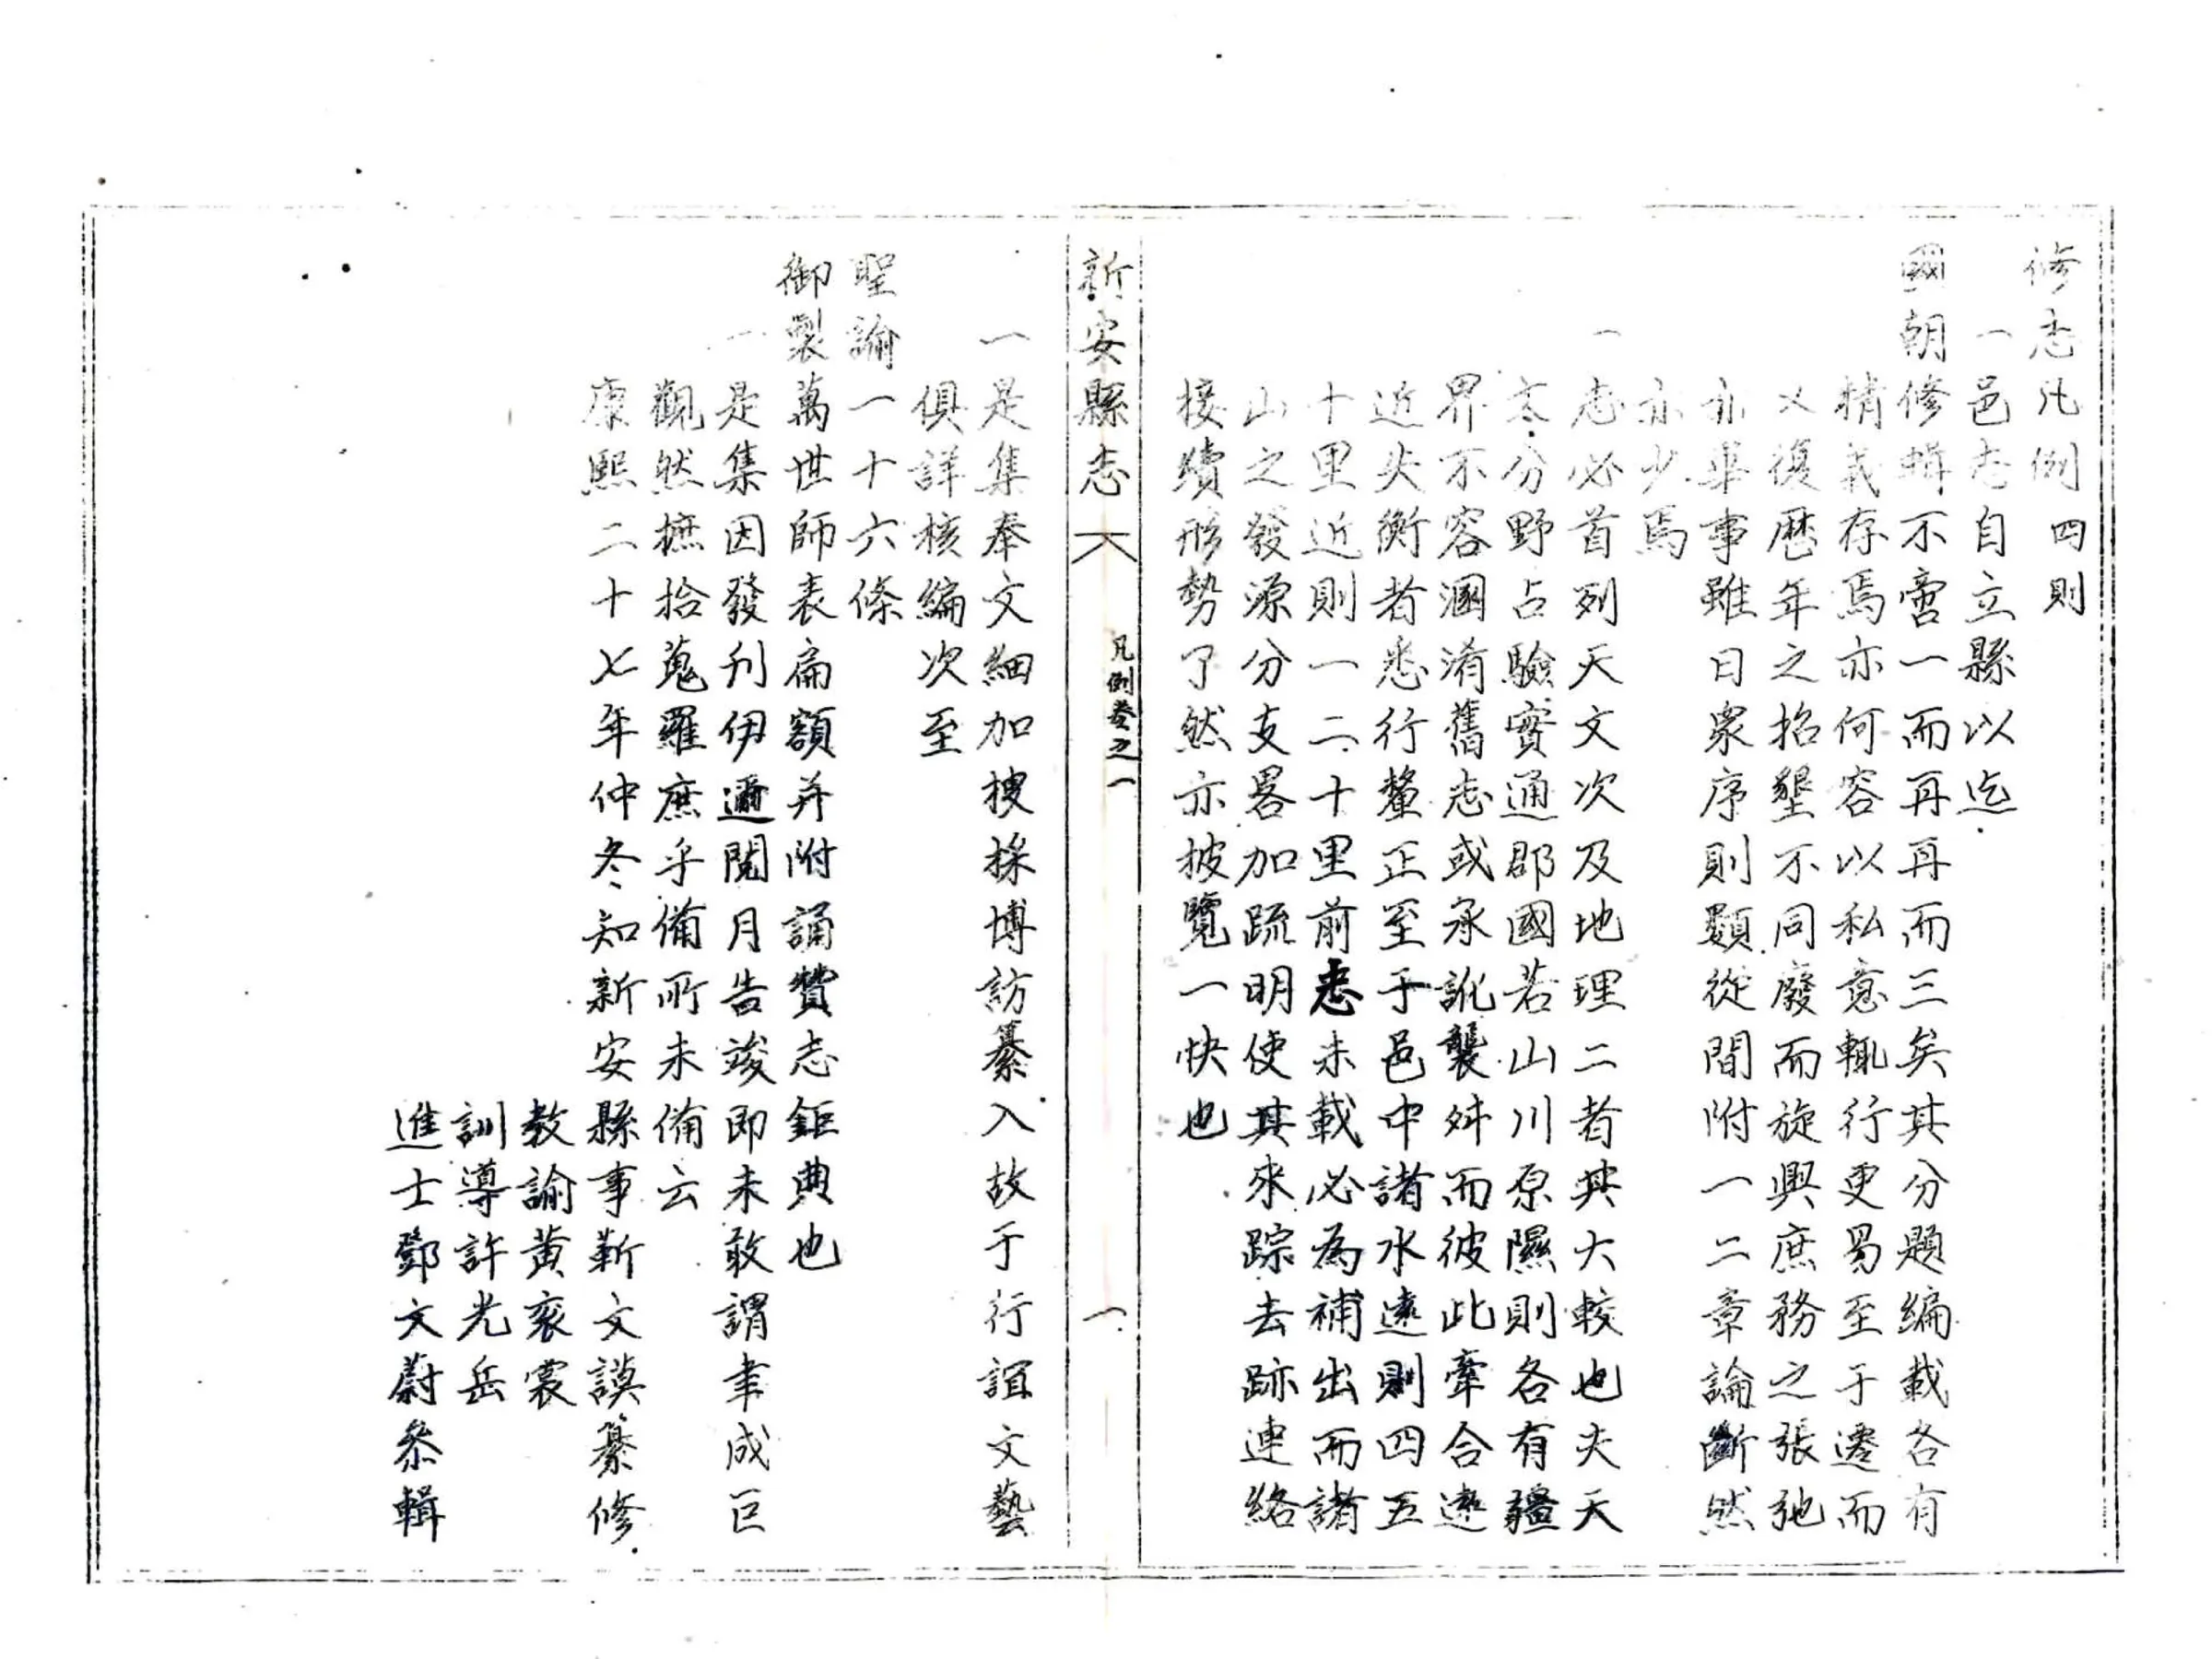 修志凡例四則
一邑志自立縣以迄
國朝修輯不啻一而再再而三矣其分題編載各有
精義存焉亦何容以私意輒行更易至于遷而
又復歷年之招墾不同廢而旋興庶務之張弛
亦畢事雖曰衆序則類從間附一二章論斷然
亦少焉
一志必首列天文次及地理二者其大較也夫天
文分野占驗實通郡國若山川原隰則各有疆
界不容溷淆舊志或承訛襲舛而彼此牽合遠
近失衡者悉行釐正至于邑中諸水遠則四五
十里近則一二十里前志未載必為補出而諸
山之發源分支畧加疏明使其來踪去跡連絡
接續形勢了然亦披覽一快也
新安縣志 凡例卷之一 一
一是集奉文細加搜採博訪纂入故于行誼文藝
俱詳核編次至
聖諭一十六條
御製萬世師表扁額并附誦贊志鉅典也
一是集因發刊伊邇閱月告竣即未敢謂聿成巨
觀然摭拾蒐羅庶乎備所未備云
康熙二十七年仲冬知新安縣事靳文謨纂修
教諭黃袞裳
訓導許光岳
進士鄧文蔚叅輯